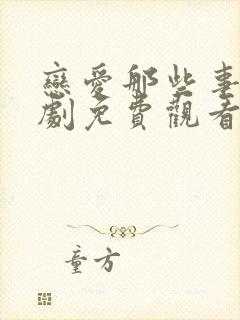 戀愛那些事
劇免費觀看
童方